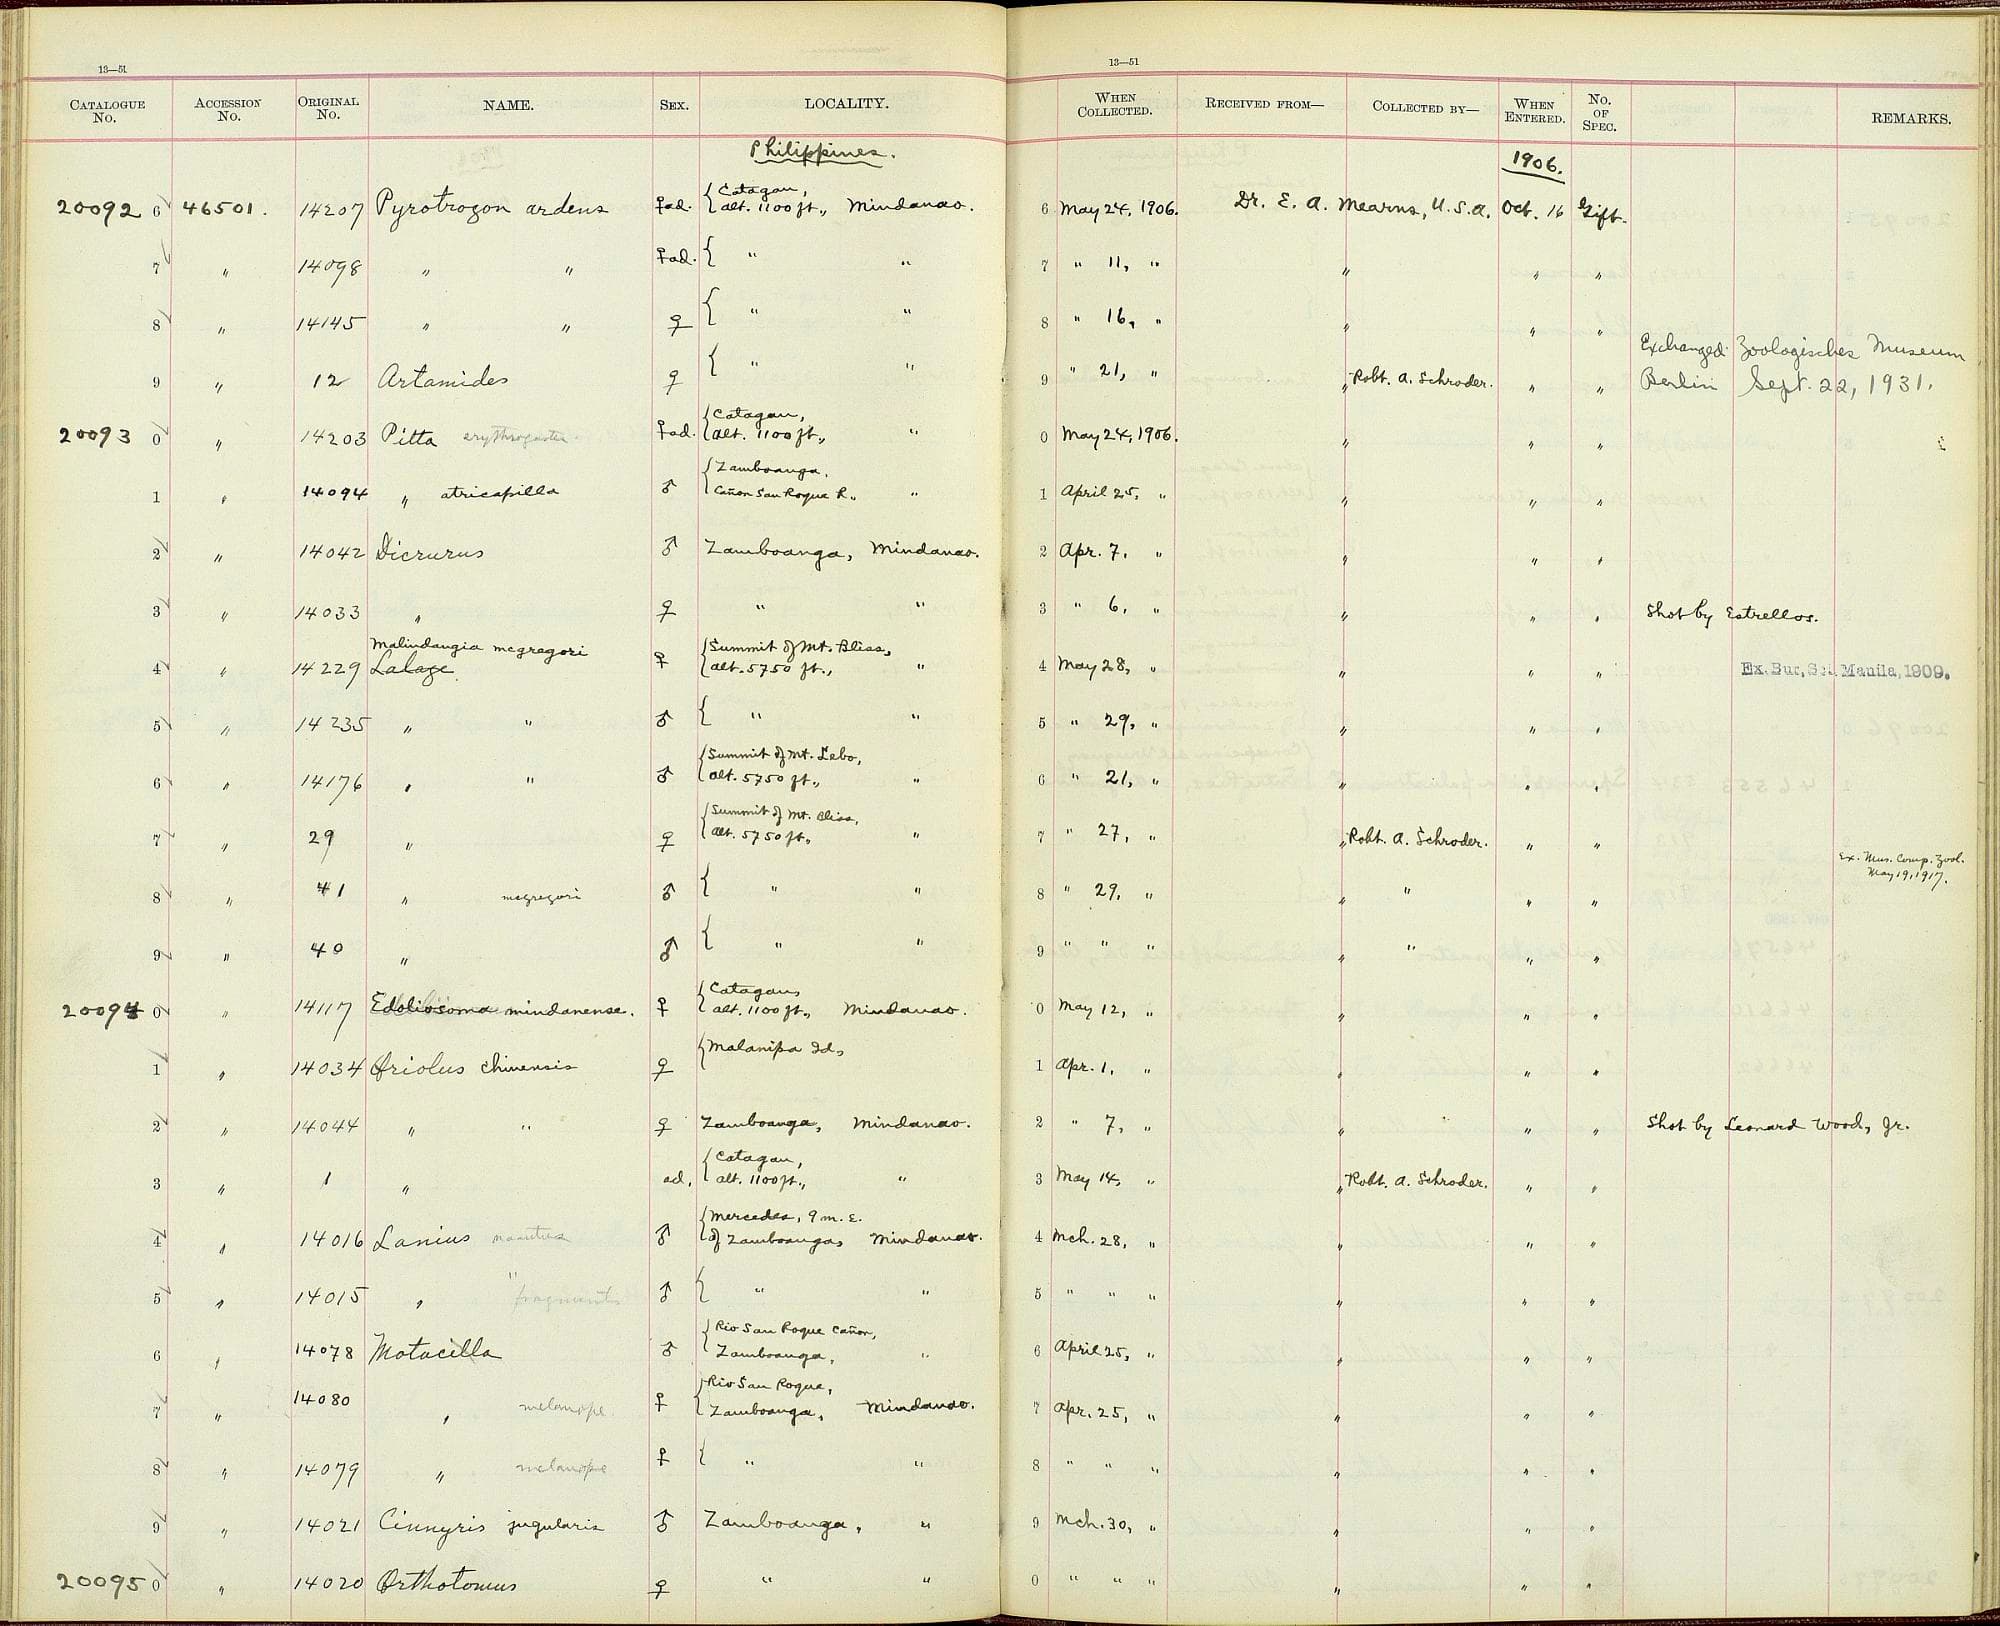 13—51
CATALOGUE No. ACCESSION No. ORIGINAL No. NAME. SEX. LOCALITY.
Philippines.
20092 6 46501. 14207 Pyrotrogon ardens ♀ad. { Catagan, alt. 1100 ft., Mindanao.
7 " 14098 " " ♀ad. { " "
8 " 14145 " " ♀ { " "
9 " 12 Artamides ♀ { " "
20093 0 " 14203 Pitta erythrogaster ♀ad. { Catagan, alt. 1100 ft., "
1 " 14094 " atricapilla ♂ { Zamboanga, Cañon San Roque R., "
2 " 14042 Dicrurus ♂ Zamboanga, Mindanao.
3 " 14033 " ♀ " "
Malindangia mcgregori
4 " 14229 Lalage ♀ { Summit of Mt. Bliss, alt. 5750 ft., "
5 " 14235 " " ♂ { " "
6 " 14176 " " ♂ { Summit of Mt. Lebo, alt. 5750 ft., "
7 " 29 " ♀ { Summit of Mt. Bliss, alt. 5750 ft., "
8 " 41 " mcgregori ♂ { " "
9 " 40 " ♂ { " "
20094 0 " 14117 Edoliosoma mindanense. ♀ { Catagan, alt. 1100 ft., Mindanao.
1 " 14034 Oriolus chinensis ♀ { Malanipa Id.,
2 " 14044 " " ♀ Zamboanga, Mindanao.
3 " 1 " ad. { Catagan, alt. 1100 ft., "
4 " 14016 Lanius nasutus ♂ { Mercedes, 9 m. E. of Zamboanga, Mindanao.
5 " 14015 " " ♂ { " "
6 " 14078 Motacilla ♂ { Rio San Roque Cañon, Zamboanga, "
7 " 14080 " melanope ♀ { Rio San Roque, Zamboanga, Mindanao.
8 " 14079 " melanope ♀ { " "
9 " 14021 Cinnyris jugularis ♂ Zamboanga, "
20095 0 " 14020 Orthotomus ♀ " "
13—51
WHEN COLLECTED. RECEIVED FROM— COLLECTED BY— WHEN ENTERED. No. OF SPEC. REMARKS.
1906.
6 May 24, 1906. Dr. E. A. Mearns, U.S.A. Oct. 16 Gift.
7 " 11, " " " "
8 " 16, " " " "
Exchanged Zoologisches Museum
9 " 21, " " Robt. A. Schroder. " " Berlin Sept. 22, 1931.
0 May 24, 1906. " " "
1 April 25, " " " "
2 Apr. 7, " " " "
3 " 6, " " " " Shot by Estrellos.
4 May 28, " " " " Ex. Bur. Sc. Manila, 1909.
5 " 29, " " " "
6 " 21, " " " "
7 " 27, " " Robt. A. Schroder. " "
Ex. Mus. Comp. Zool.
May 19, 1917.
8 " 29, " " " " "
9 " " " " " " "
0 May 12, " " " "
1 Apr. 1, " " " "
2 " 7, " " " " Shot by Leonard Wood, Jr.
3 May 14, " " Robt. A. Schroder. " "
4 Mch. 28, " " " "
5 " " " " " "
6 April 25, " " " "
7 Apr. 25, " " " "
8 " " " " " "
9 Mch. 30, " " " "
0 " " " " " "